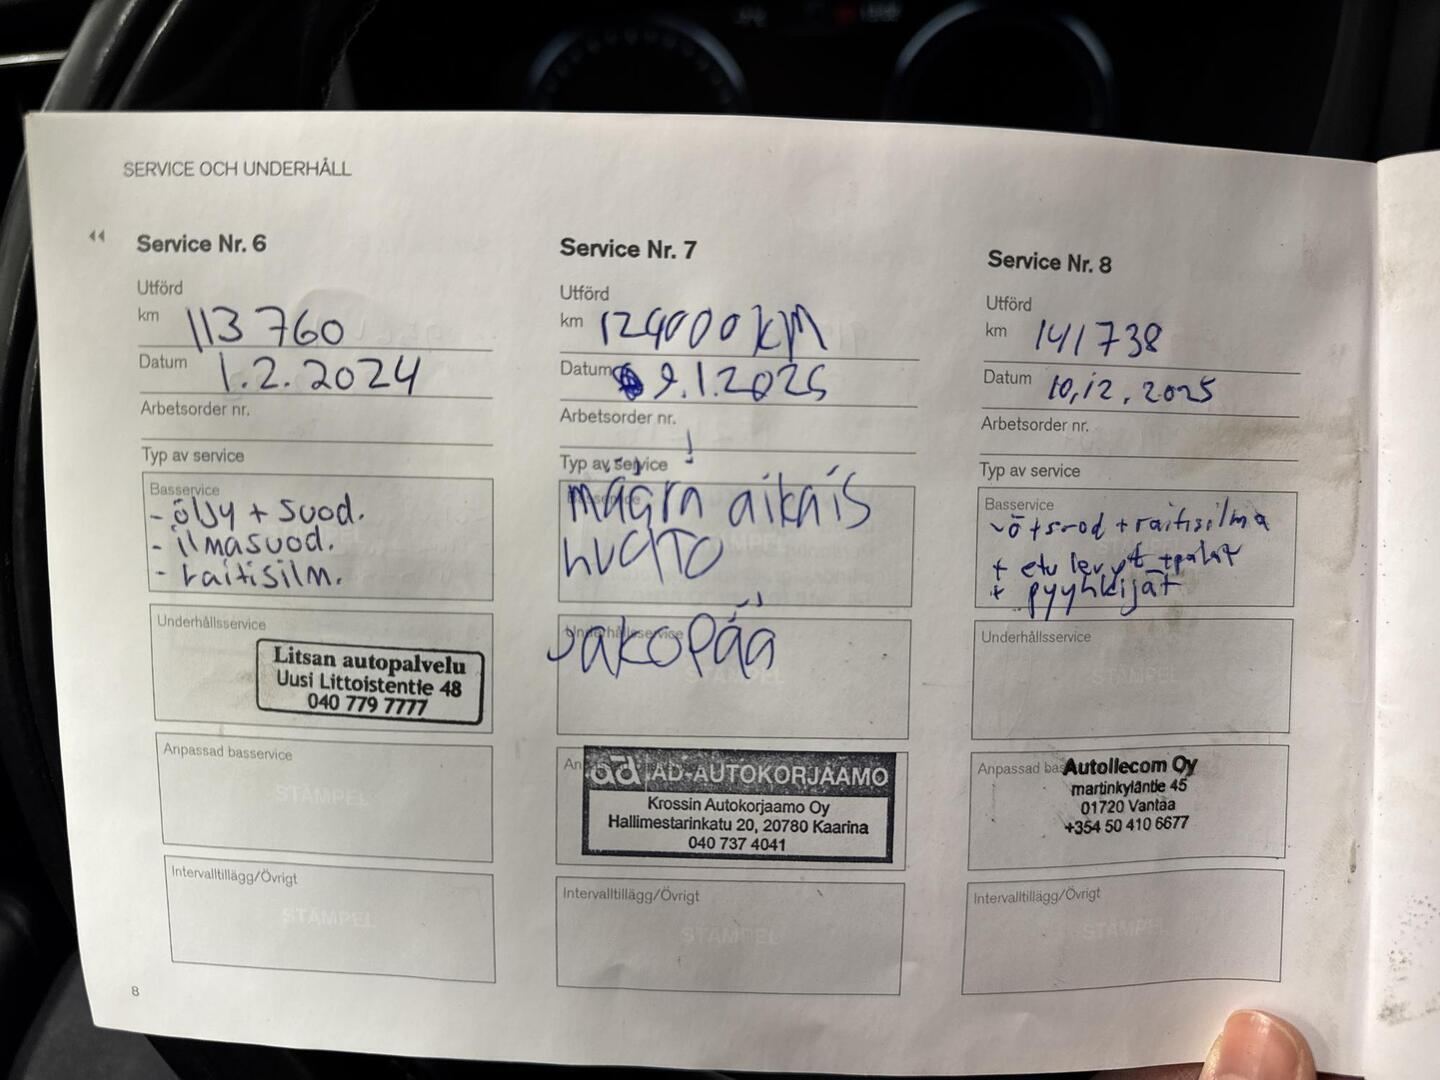 SERVICE OCH UNDERHÅLL
Service Nr. 6
Utförd
km 113 760
Datum 1.2.2024
Arbetsorder nr.
Typ av service
Basservice
- öljy + suod.
- ilmasuod.
- raitisilm.
Underhållsservice
Litsan autopalvelu
Uusi Littoistentie 48
040 779 7777
Anpassad basservice
STÄMPEL
Intervalltillägg/Övrigt
STÄMPEL
8
Service Nr. 7
Utförd
km 124000 KM
Datum 9.1.2025
Arbetsorder nr.
Typ av service
määrä aikais
huolto
Underhållsservice
Jakopää
STÄMPEL
AD-AUTOKORJAAMO
Krossin Autokorjaamo Oy
Hallimestarinkatu 20, 20780 Kaarina
040 737 4041
Intervalltillägg/Övrigt
STÄMPEL
Service Nr. 8
Utförd
km 141738
Datum 10,12,2025
Arbetsorder nr.
Typ av service
Basservice
- ö + suod + raitisilma
+ etu levyt + palat
+ pyyhkijät
Underhållsservice
STÄMPEL
Anpassad bas
Autollecom Oy
martinkyläntie 45
01720 Vantaa
+354 50 410 6677
Intervalltillägg/Övrigt
STÄMPEL